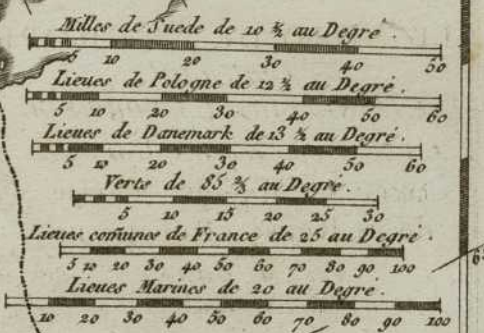 Milles de Suede de 10 ½ au Degré.
5 10 20 30 40 50
Lieues de Pologne de 12 ½ au Degré.
5 10 20 30 40 50 60
Lieues de Danemark de 13 ½ au Degré.
5 10 20 30 40 50 60
Verts de 85 ⅔ au Degré.
5 10 15 20 25 30
Lieues comunes de France de 25 au Degré.
5 10 20 30 40 50 60 70 80 90 100
Lieues Marines de 20 au Degre.
10 20 30 40 50 60 70 80 90 100